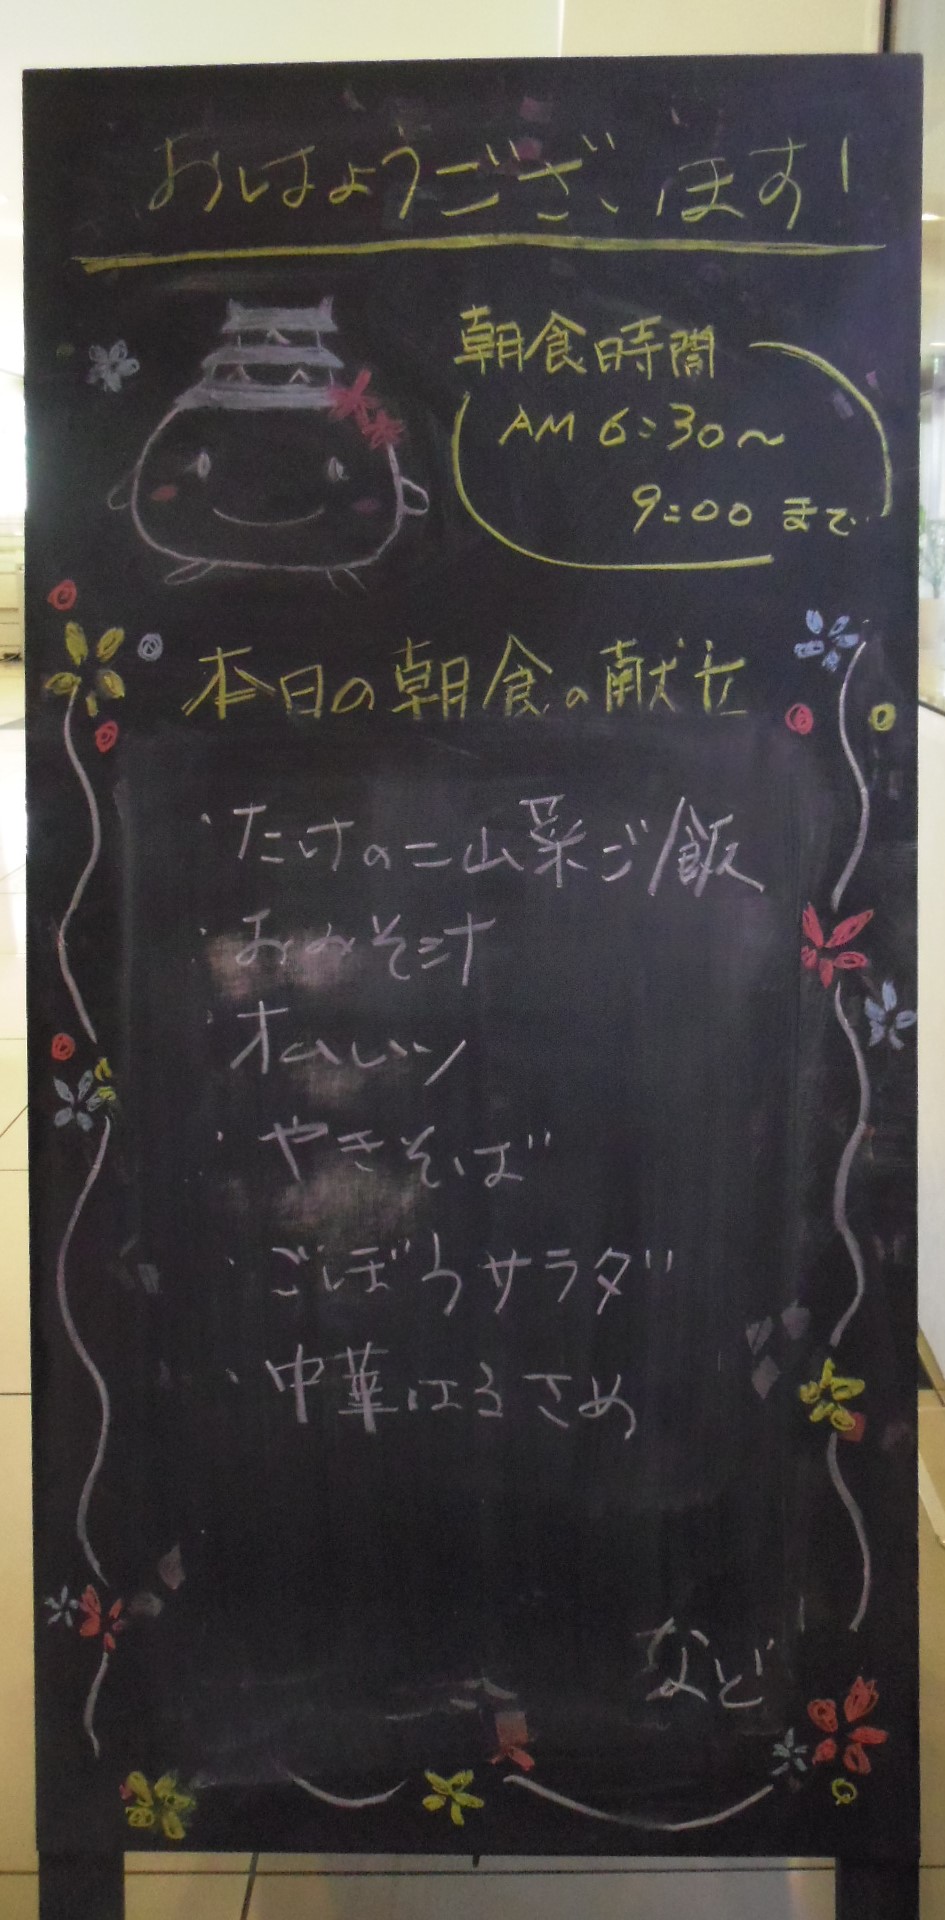 おはようございます!
朝食時間
AM 6:30～
9:00 まで
本日の朝食の献立
・たけのこ山菜ご飯
・おみそ汁
・オムレツ
・やきそば
・ごぼうサラダ
・中華はるさめ
など